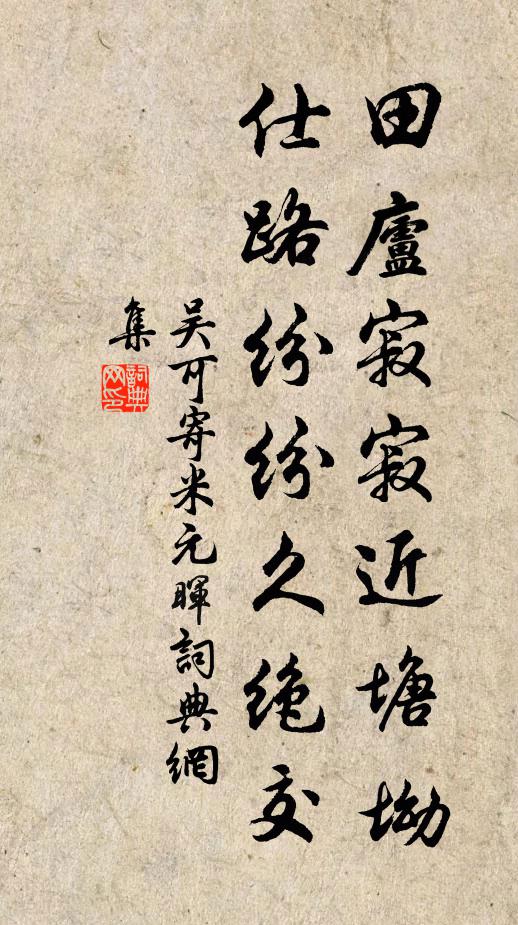 田廬寂寂近塘坳
仕路紛紛久绝交
吴可寄米元暉詞典網
集
詞典
网印